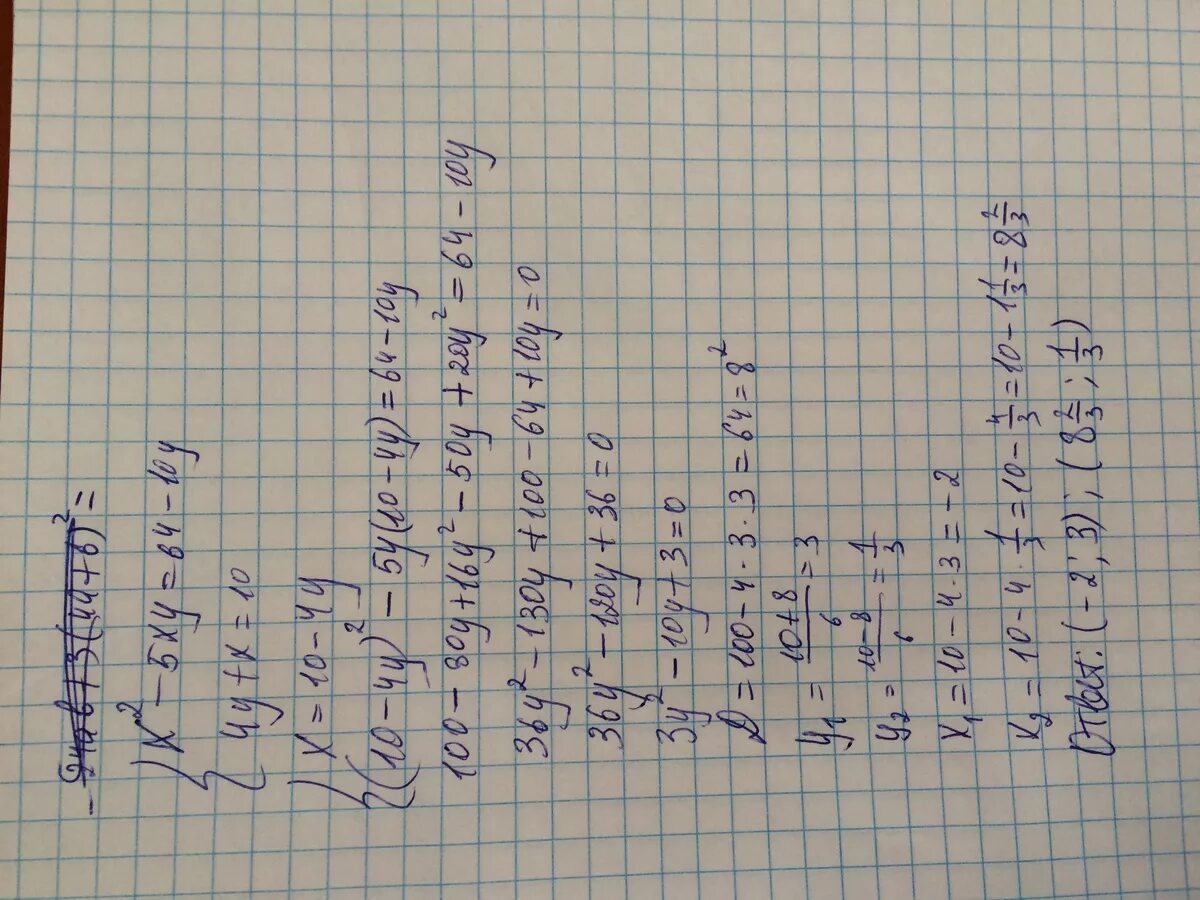 { x² - 5xy = 64 - 10y
4y + x = 10
{ x = 10 - 4y
(10 - 4y)² - 5y(10 - 4y) = 64 - 10y
100 - 80y + 16y² - 50y + 20y² = 64 - 10y
36y² - 130y + 100 - 64 + 10y = 0
36y² - 120y + 36 = 0
3y² - 10y + 3 = 0
D = 100 - 4 · 3 · 3 = 64 = 8²
y₁ = (10+8)/6 = 3
y₂ = (10-8)/6 = 1/3
x₁ = 10 - 4 · 3 = -2
x₂ = 10 - 4 · 1/3 = 10 - 4/3 = 10 - 1 1/3 = 8 2/3
Ответ: (-2; 3); (8 2/3; 1/3)